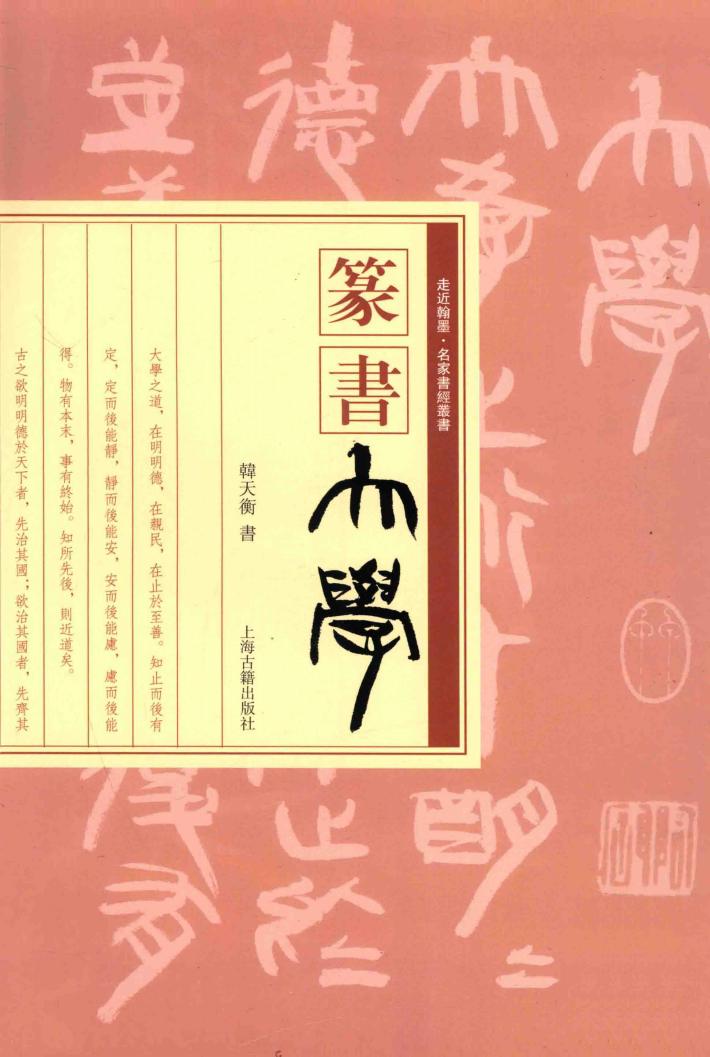 大學
大學之道在明
德
止於
後有
走近翰墨·名家書經叢書
篆書大學
韓天衡 書
上海古籍出版社
大學之道，在明明德，在親民，在止於至善。知止而後有
定，定而後能靜，靜而後能安，安而後能慮，慮而後能
得。物有本末，事有終始。知所先後，則近道矣。
古之欲明明德於天下者，先治其國；欲治其國者，先齊其